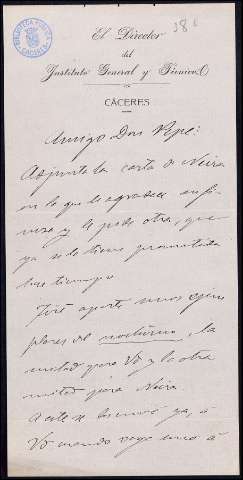 38
BIBLIOTECA PÚBLICA
CÁCERES
El Director
del
Instituto General y Técnico
CÁCERES
Amigo Don Pepe:
Adjunta la carta de Neira
en la que le agradece su
y le pide otra, que
ya se la tiene prometida
hace tiempo.
Tiré aparte unos ejem
plares del nocturno, la
mitad para Vd y la otra
mitad para Neira.
A este se los envío ya, á
Vd cuando vaya uno á